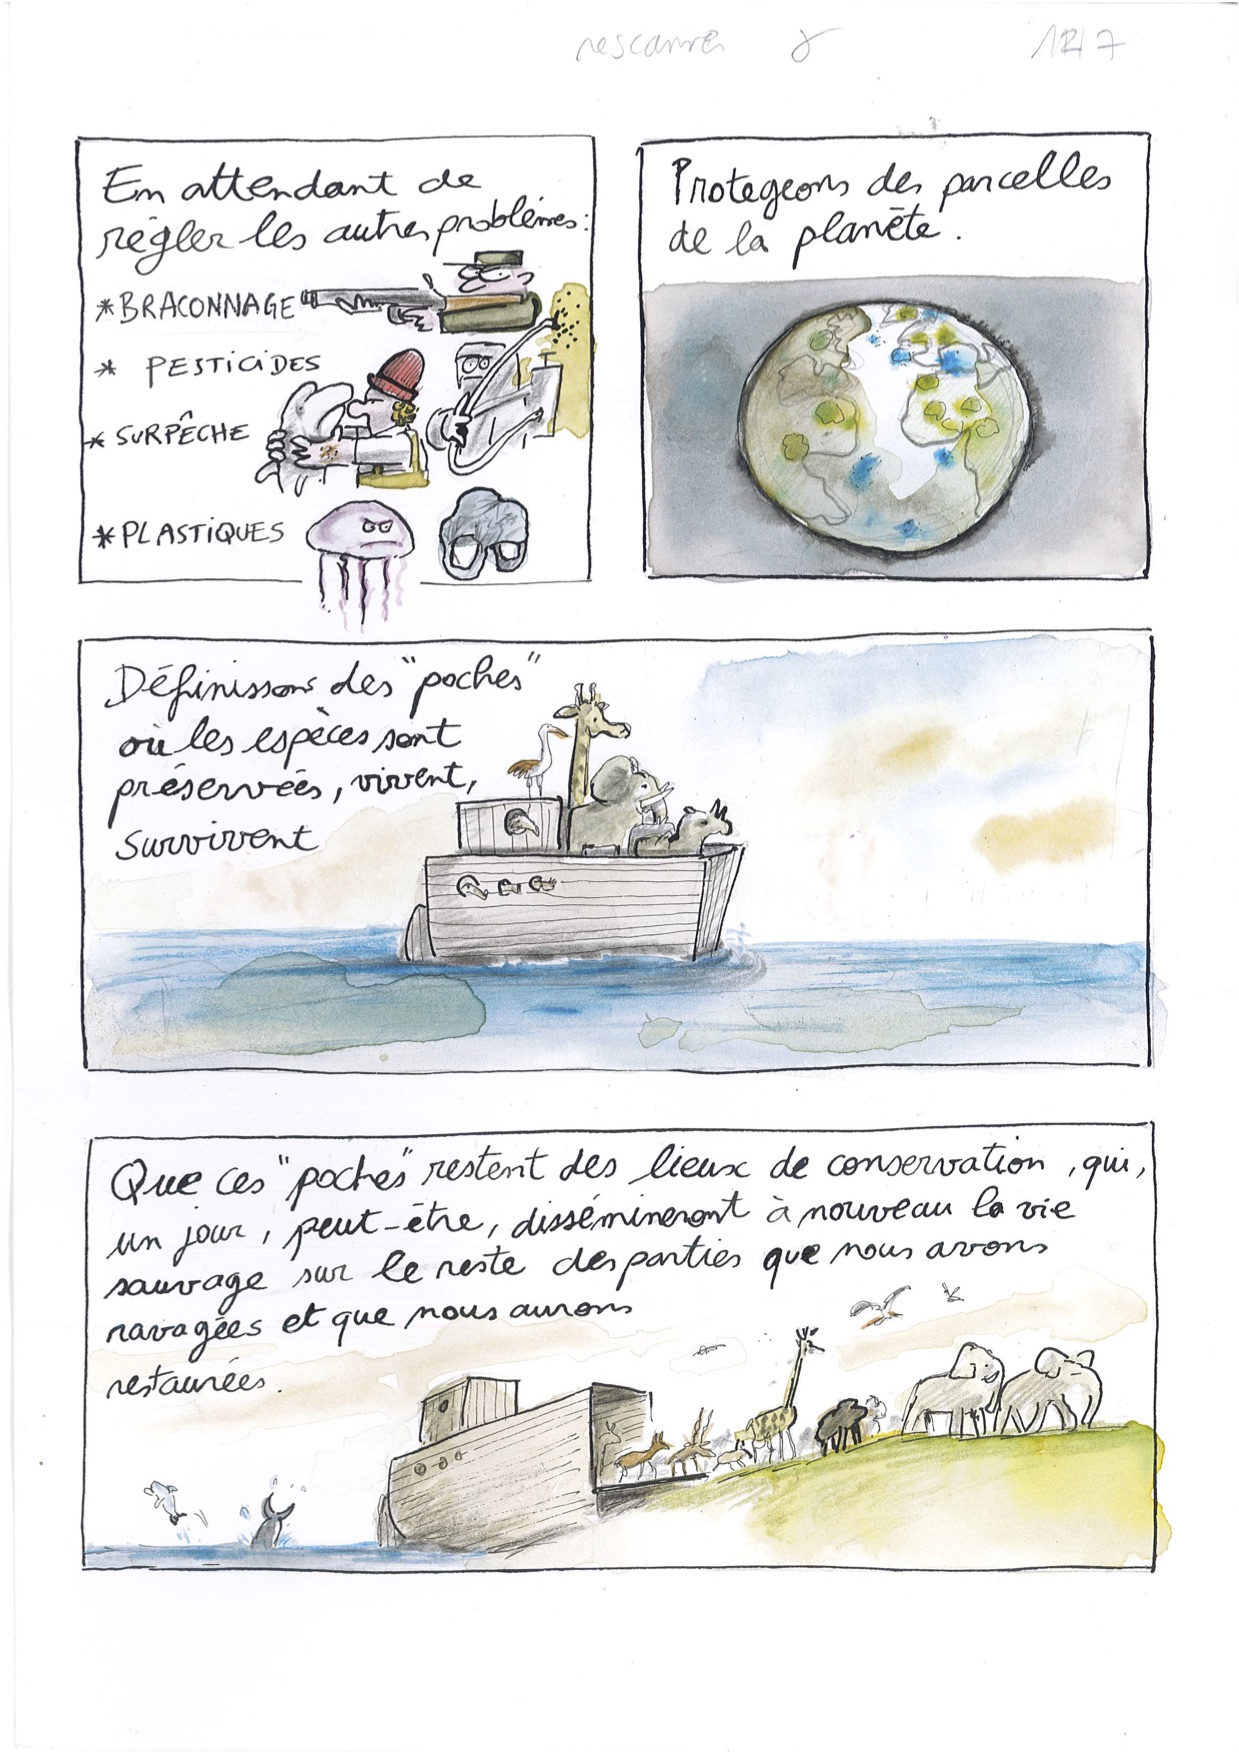 rescanné
En attendant de
règler les autres problèmes:
* BRACONNAGE
* PESTICIDES
* SURPÊCHE
* PLASTIQUES
Protegeons des parcelles
de la planête.
Définissons des "poches"
où les espèces sont
préservées, vivent,
survivent
Que ces "poches" restent des lieux de conservation, qui,
un jour, peut-être, dissémineront à nouveau la vie
sauvage sur le reste des parties que nous avons
ravagées et que nous aurons
restaurées.